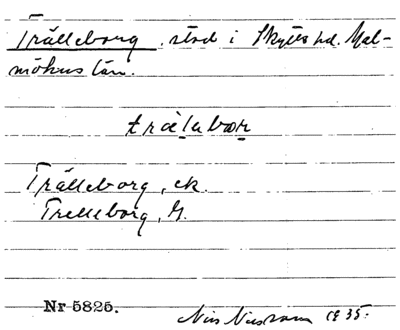 Trälleborg, stad i Skytts hd. Mal-
möhus län.
träḷạbọṛ
Trälleborg, ek.
Trelleborg, G.
Nr 5825.
Nils 1935.